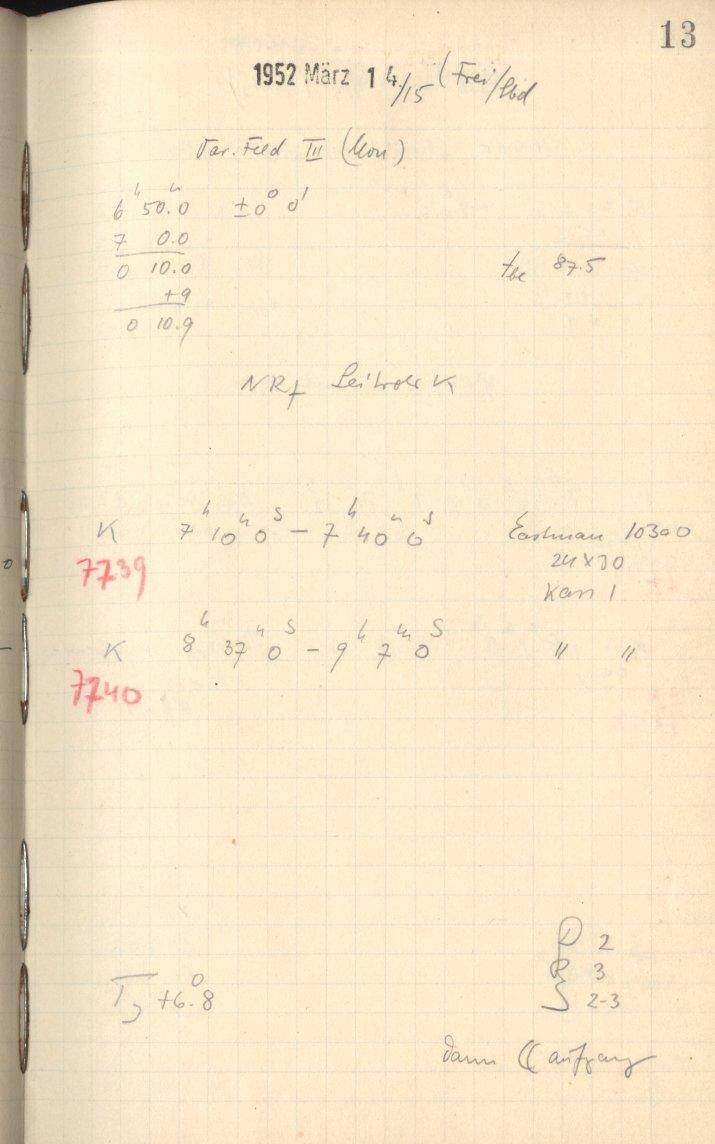 13
1952 März 14/15 (Frei/Sbd
Var. Feld III (Mon)
6ʰ 50.0ᵐ ±0° 0'
7 0.0
0 10.0
+9
0 10.9
87.5
NRf Leitrohr K
K 7ʰ 10ᵐ 0ˢ – 7ʰ 40ᵐ 0ˢ Eastman 103a0
7739
24x30
Kass 1
K 8ʰ 37ᵐ 0ˢ – 9ʰ 7ᵐ 0ˢ " "
7740
D 2
R 3
S 2-3
T +6.°8
dann ☾ aufgang